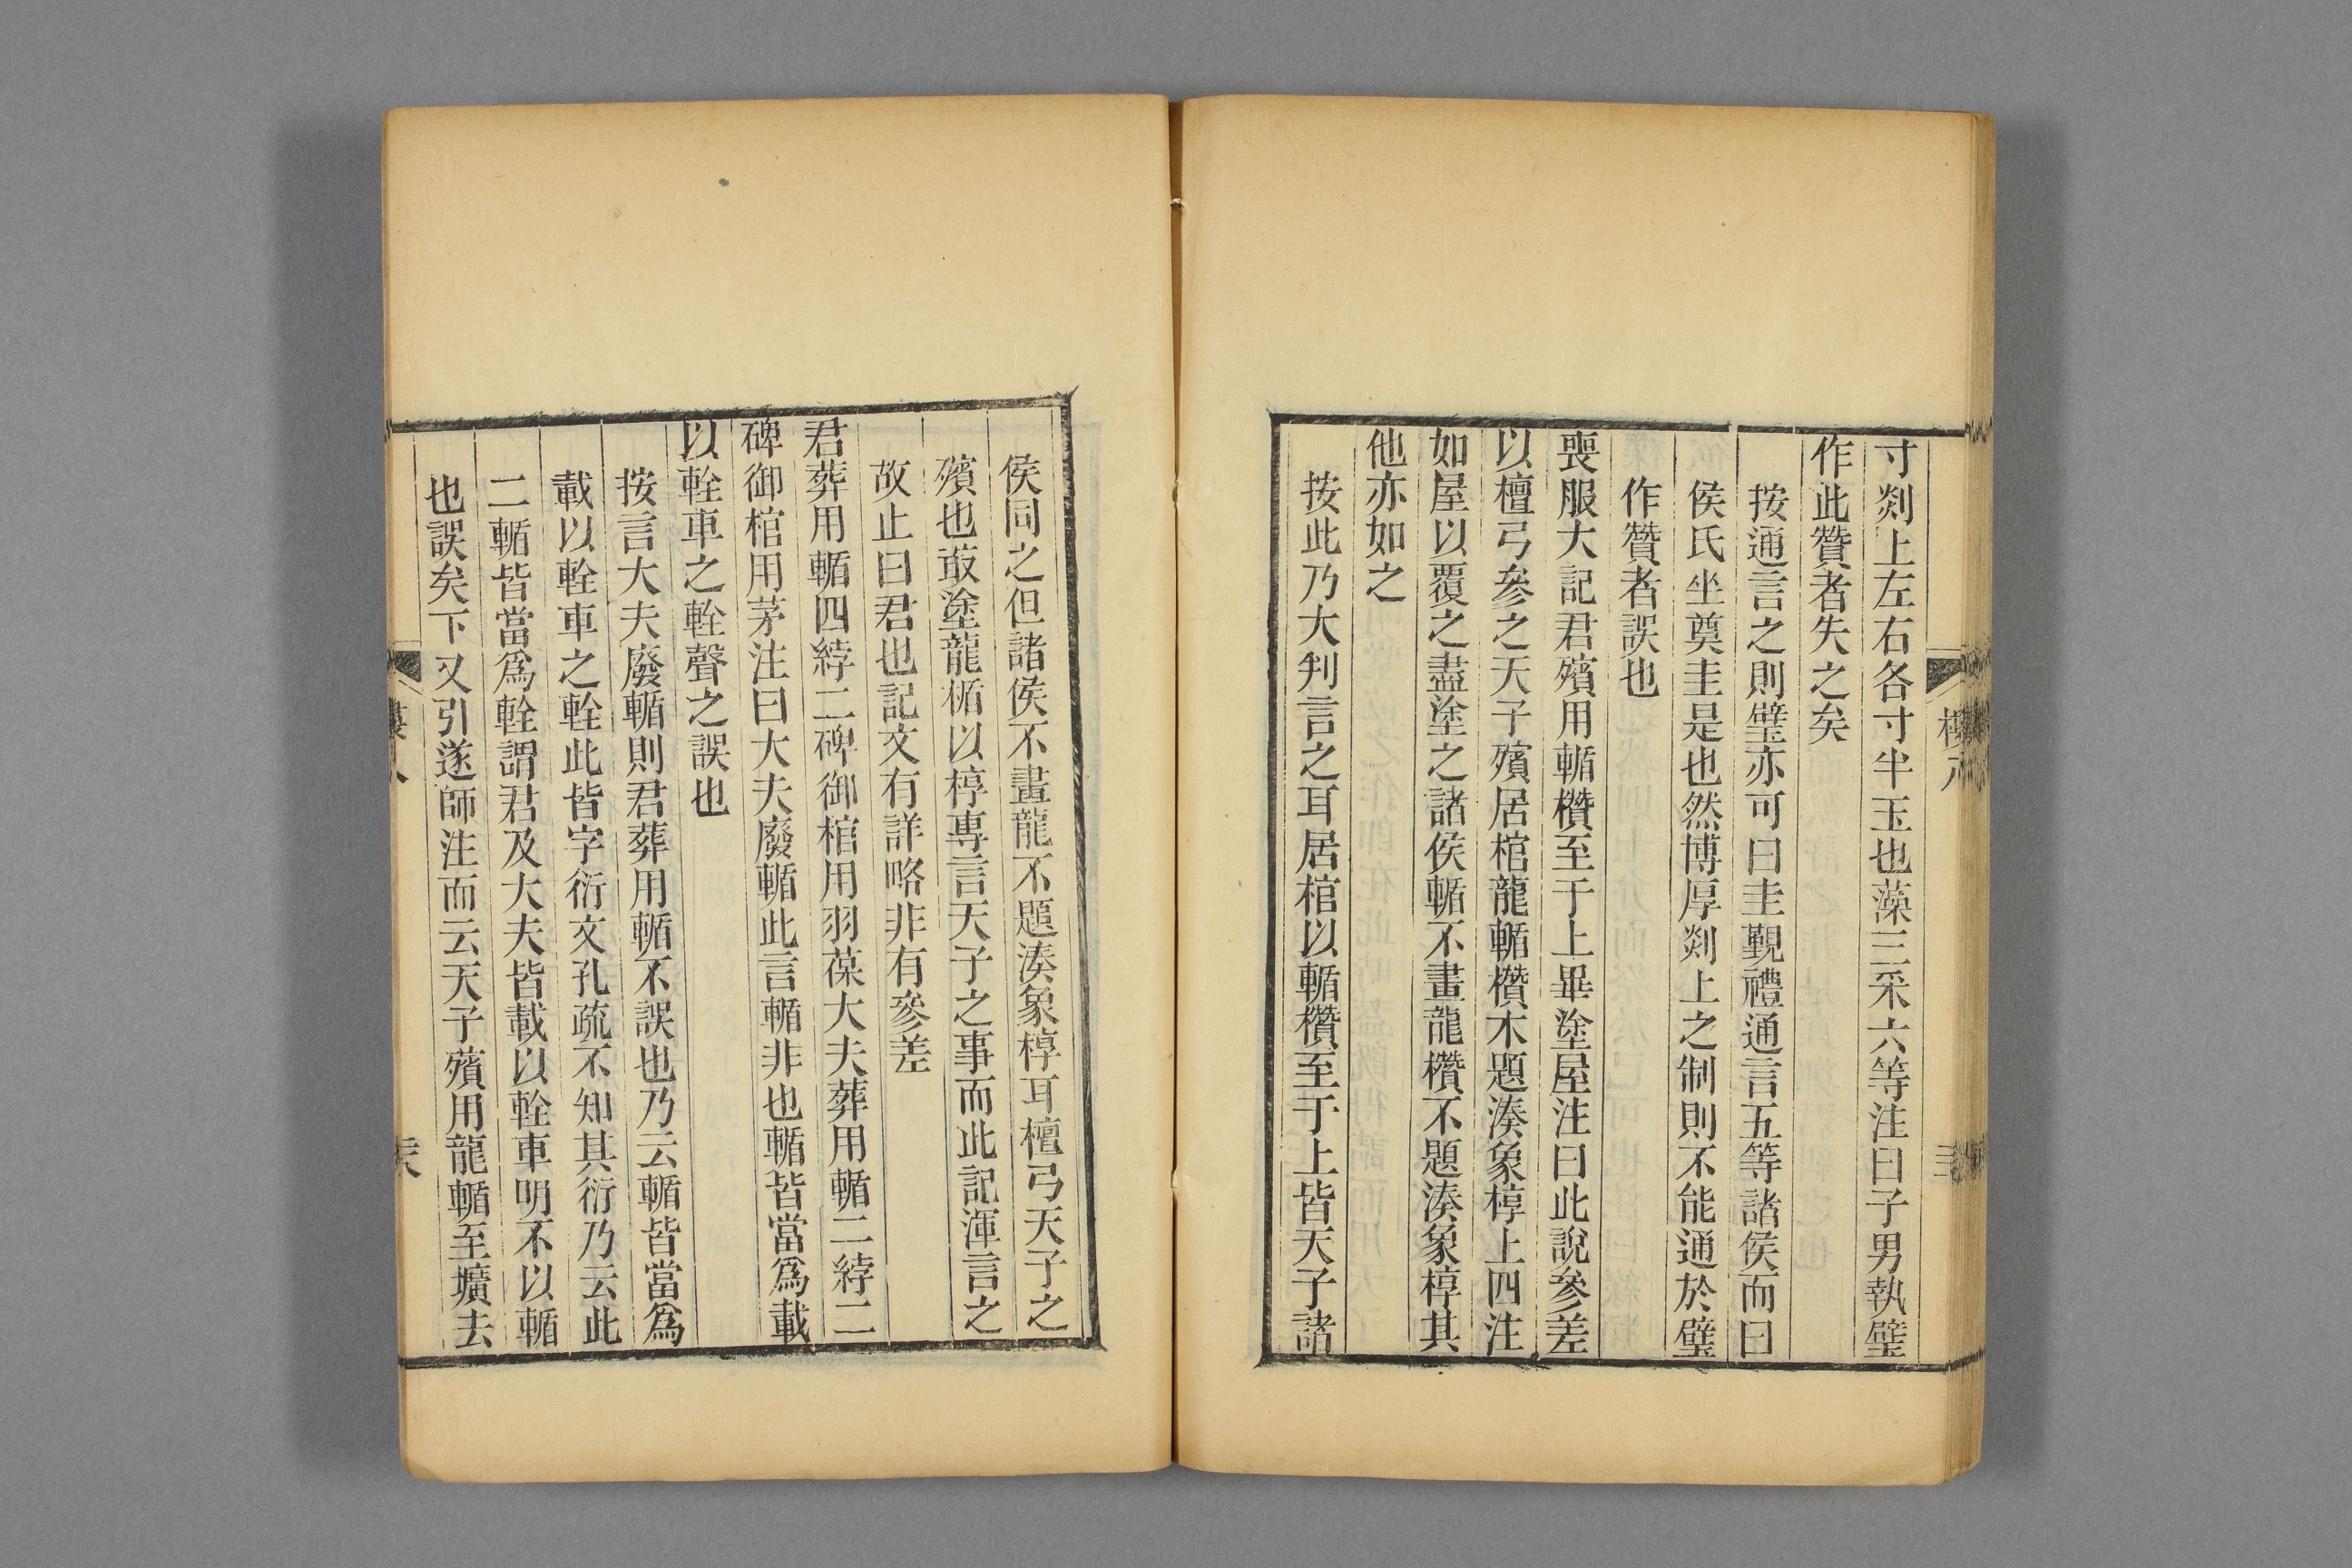 寸剡上左右各寸半玉也藻三采六等注曰子男執璧
作此贊者失之矣
按通言之則璧亦可曰圭覲禮通言五等諸侯而曰
侯氏坐奠圭是也然博厚剡上之制則不能通於璧
作贊者誤也
喪服大記君殯用輴欑至于上畢塗屋注曰此說參差
以檀弓參之天子殯居棺龍輴欑木題湊象椁上四注
如屋以覆之盡塗之諸侯輴不畫龍欑不題湊象椁其
他亦如之
按此乃大判言之耳居棺以輴欑至于上皆天子諸
侯同之但諸侯不畫龍不題湊象椁耳檀弓天子之
殯也菆塗龍楯以椁專言天子之事而此記渾言之
故止曰君也記文有詳略非有參差
君葬用輴四綍二碑御棺用羽葆大夫葬用輴二綍二
碑御棺用茅注曰大夫廢輴此言輴非也輴皆當爲載
以輇車之輇聲之誤也
按言大夫廢輴則君葬用輴不誤也乃云輴皆當爲
載以輇車之輇此皆字衍文孔疏不知其衍乃云此
二輴皆當爲輇謂君及大夫皆載以輇車明不以輴
也誤矣下又引遂師注而云天子殯用龍輴至壙去